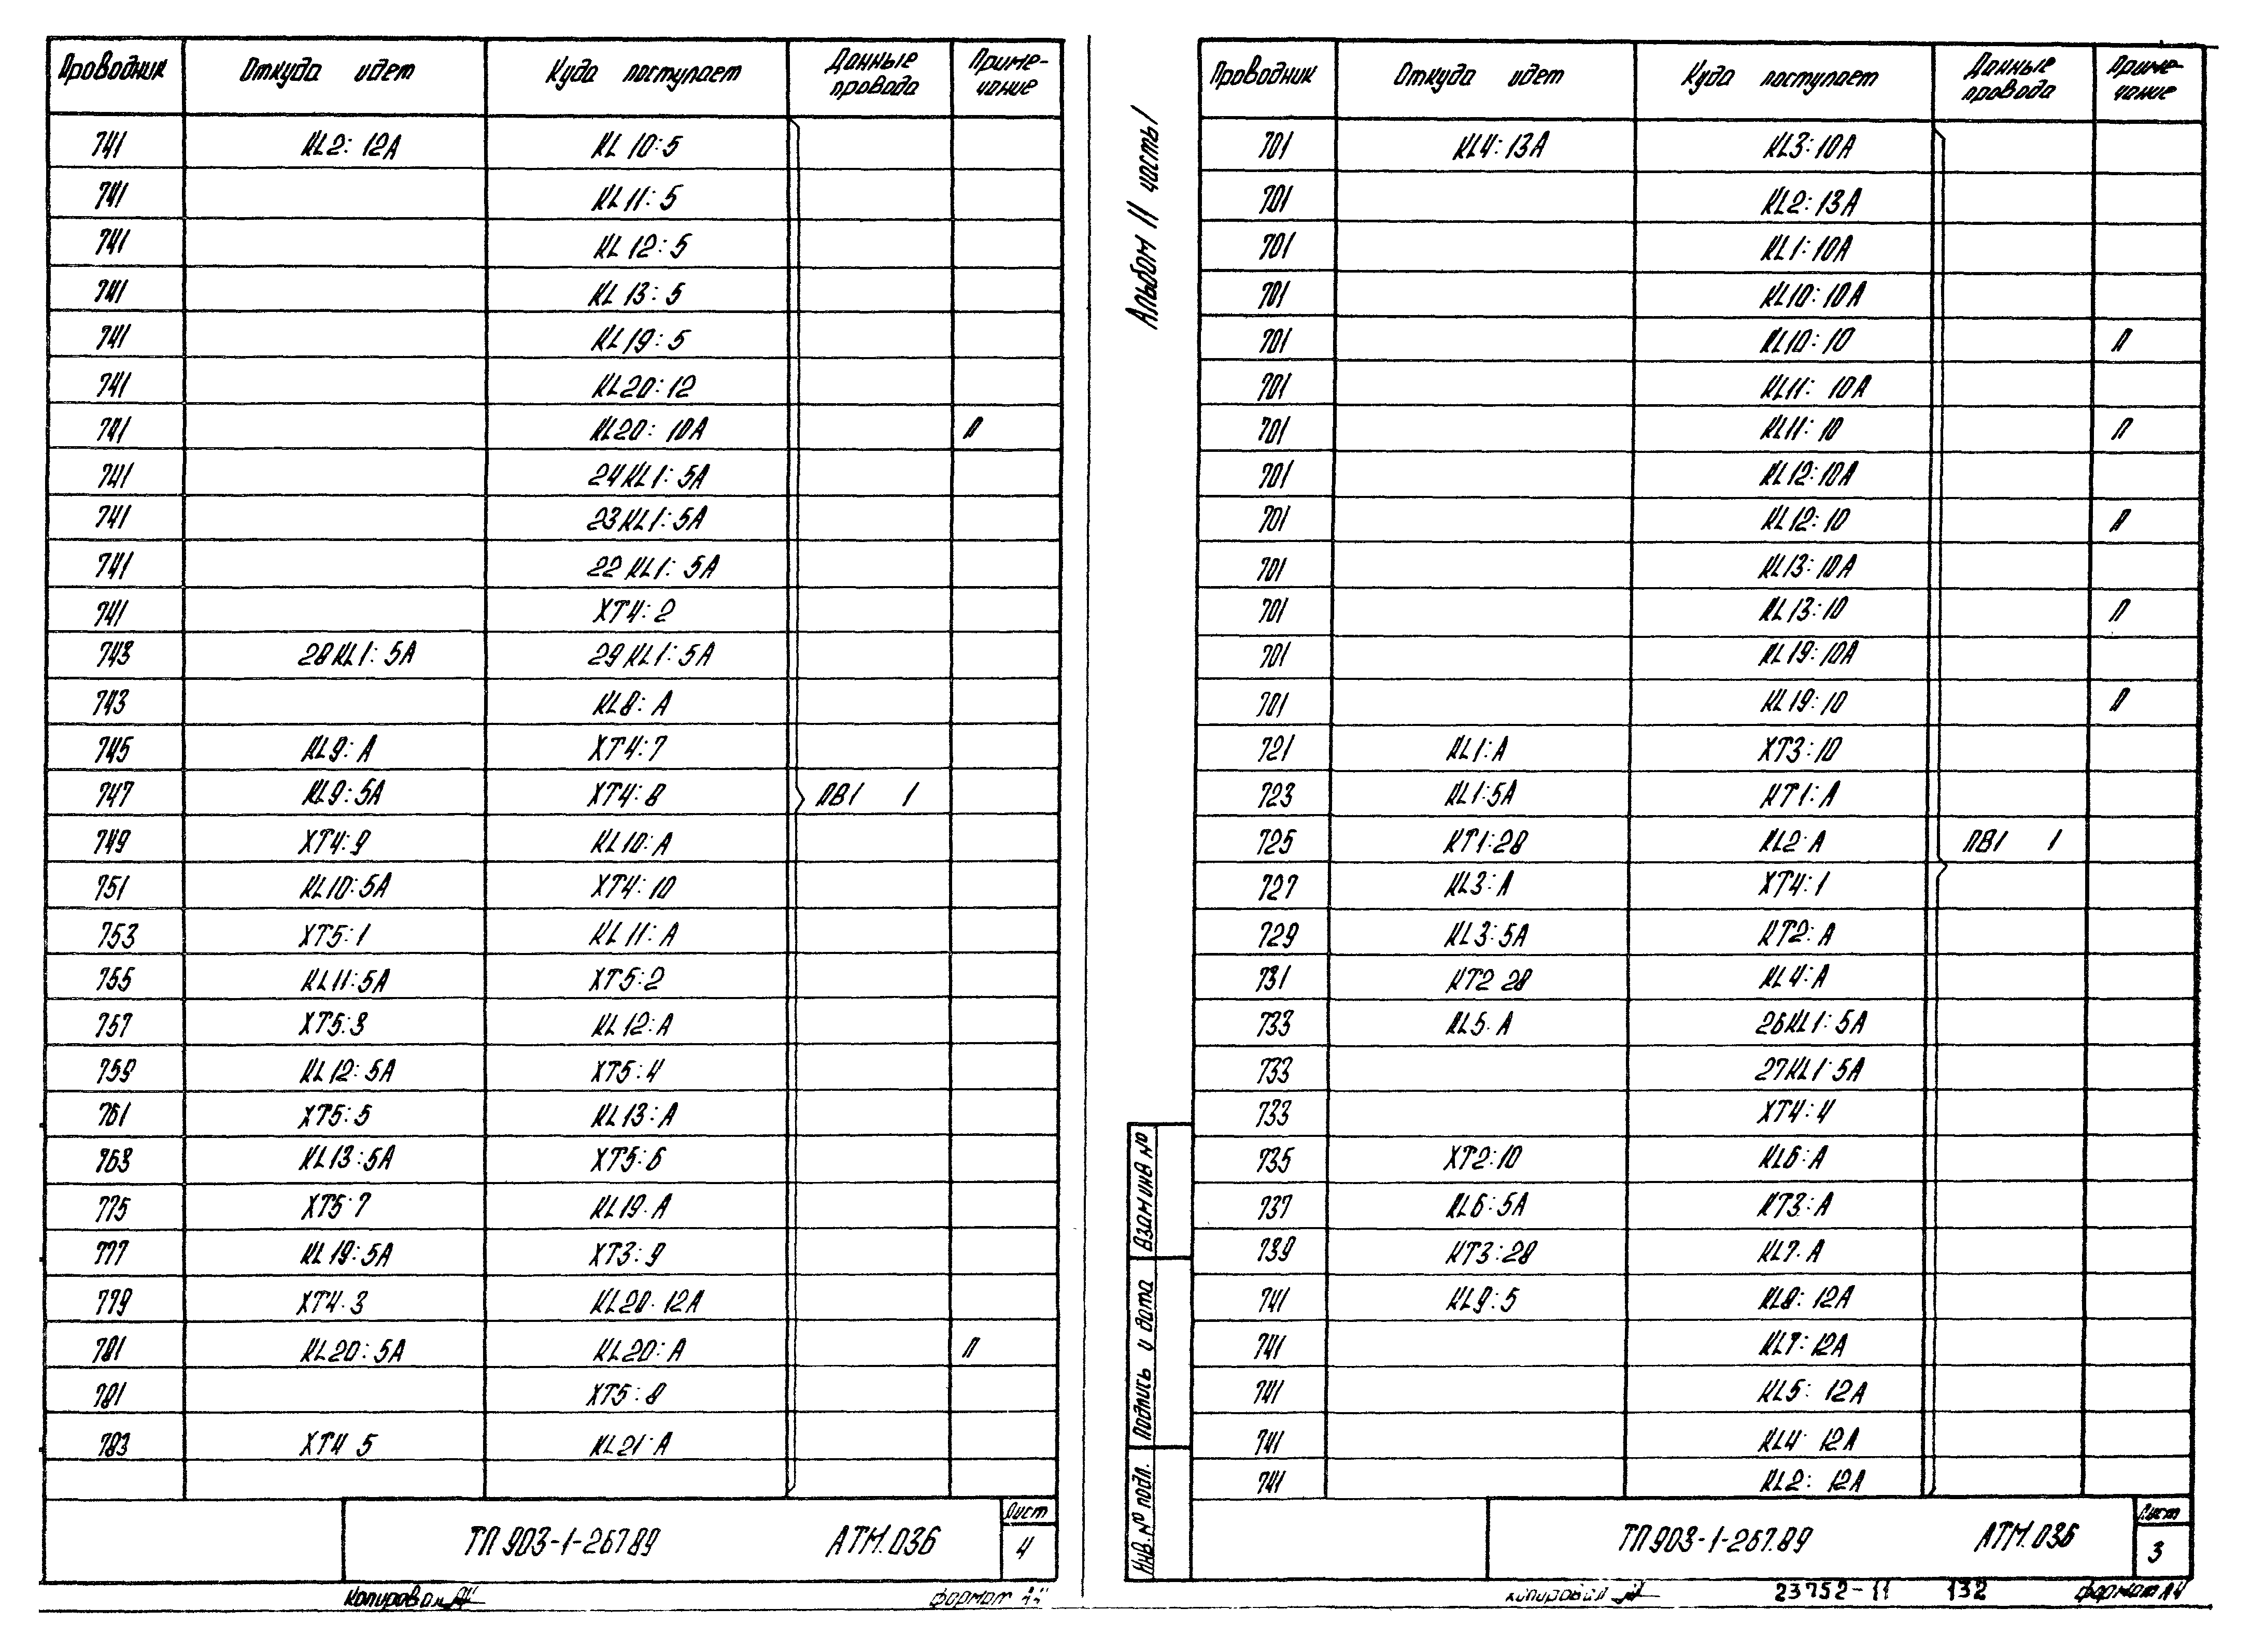 Проводник Откуда идет Куда поступает Данные провода Приме-чание
741 KL2: 12А KL 10:5
741 KL11:5
741 KL 12:5
741 KL 13:5
741 KL19:5
741 KL20:12
741 KL20: 10А П
741 24KL1:5А
741 23KL1:5А
741 22KL1:5А
741 XT4:2
743 28KL1:5А 29KL1:5А
743 KL8: А
745 KL9: А XT4:7
747 KL9:5А XT4:8 ПВ1 1
749 XT4:9 KL10:А
751 KL10:5А XT4:10
753 XT5:1 KL11:А
755 KL11:5А XT5:2
757 XT5:3 KL12:А
759 KL12:5А XT5:4
761 XT5:5 KL13:А
763 KL13:5А XT5:6
775 XT5 7 KL19.А
777 KL19:5А XT3:9
779 XT4.3 KL20.12А
781 KL20:5А KL20:А П
781 XT5:8
783 XT4 5 KL21:А
ТП 903-1-267 89 АТМ.036 Лист 4
Копировал
формат
Альбом 11 часть 1
Проводник Откуда идет Куда поступает Данные провода Приме-чание
701 KL4:13А KL3:10А
701 KL2:13А
701 KL1:10А
701 KL10:10А
701 KL10:10 П
701 KL11: 10А
701 KL11:10 П
701 KL12:10А
701 KL12:10 П
701 KL13:10А
701 KL13:10 П
701 KL19:10А
701 KL19:10 П
721 KL1:А XT3:10
723 KL1:5А KT1:А
725 KT1:28 KL2:А ПВ1 1
727 KL3:А XT4:1
729 KL3:5А KT2:А
731 KT2 28 KL4:А
733 KL5.А 26KL1:5А
733 27KL1:5А
733 XT4:4
735 XT2:10 KL6:А
737 KL6:5А KT3:А
739 KT3:28 KL7.А
741 KL9:5 KL8:12А
741 KL7:12А
741 KL5: 12А
741 KL4 12А
741 KL2: 12А
Взам инв №
Подпись и дата
Инв. № подл.
ТП 903-1-267.89 АТМ.036 Лист 3
копировал
23752-11 132
формат А4